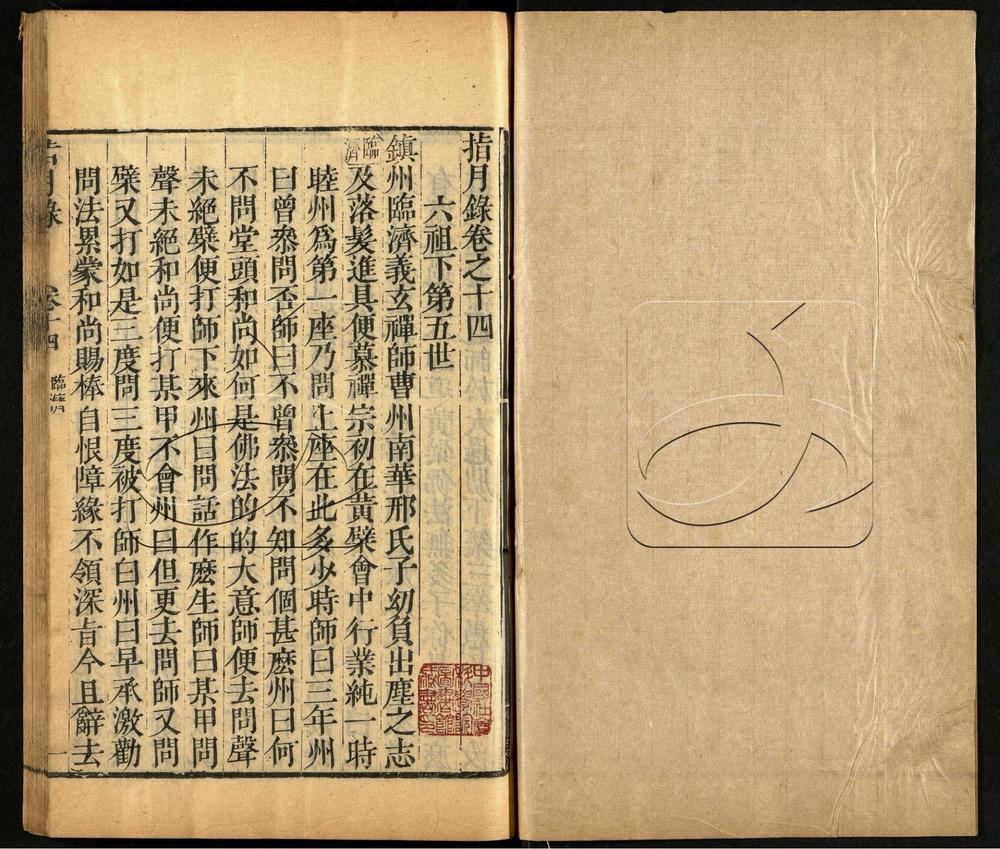 指月錄卷之十四
六祖下第五世
鎮州臨濟義玄禪師曹州南華邢氏子幼負出塵之志
臨濟
及落髮進具便慕禪宗初在黃檗會中行業純一時
睦州爲第一座乃問上座在此多少時師曰三年州
曰曾叅問否師曰不曾叅問不知問個甚麽州曰何
不問堂頭和尚如何是佛法的的大意師便去問聲
未絕檗便打師下來州曰問話作麽生師曰某甲問
聲未絕和尚便打某甲不會州曰但更去問師又問
檗又打如是三度問三度被打師白州曰早承激勸
問法累蒙和尚賜棒自恨障緣不領深旨今且辭去
指月錄 卷十四 臨濟 一